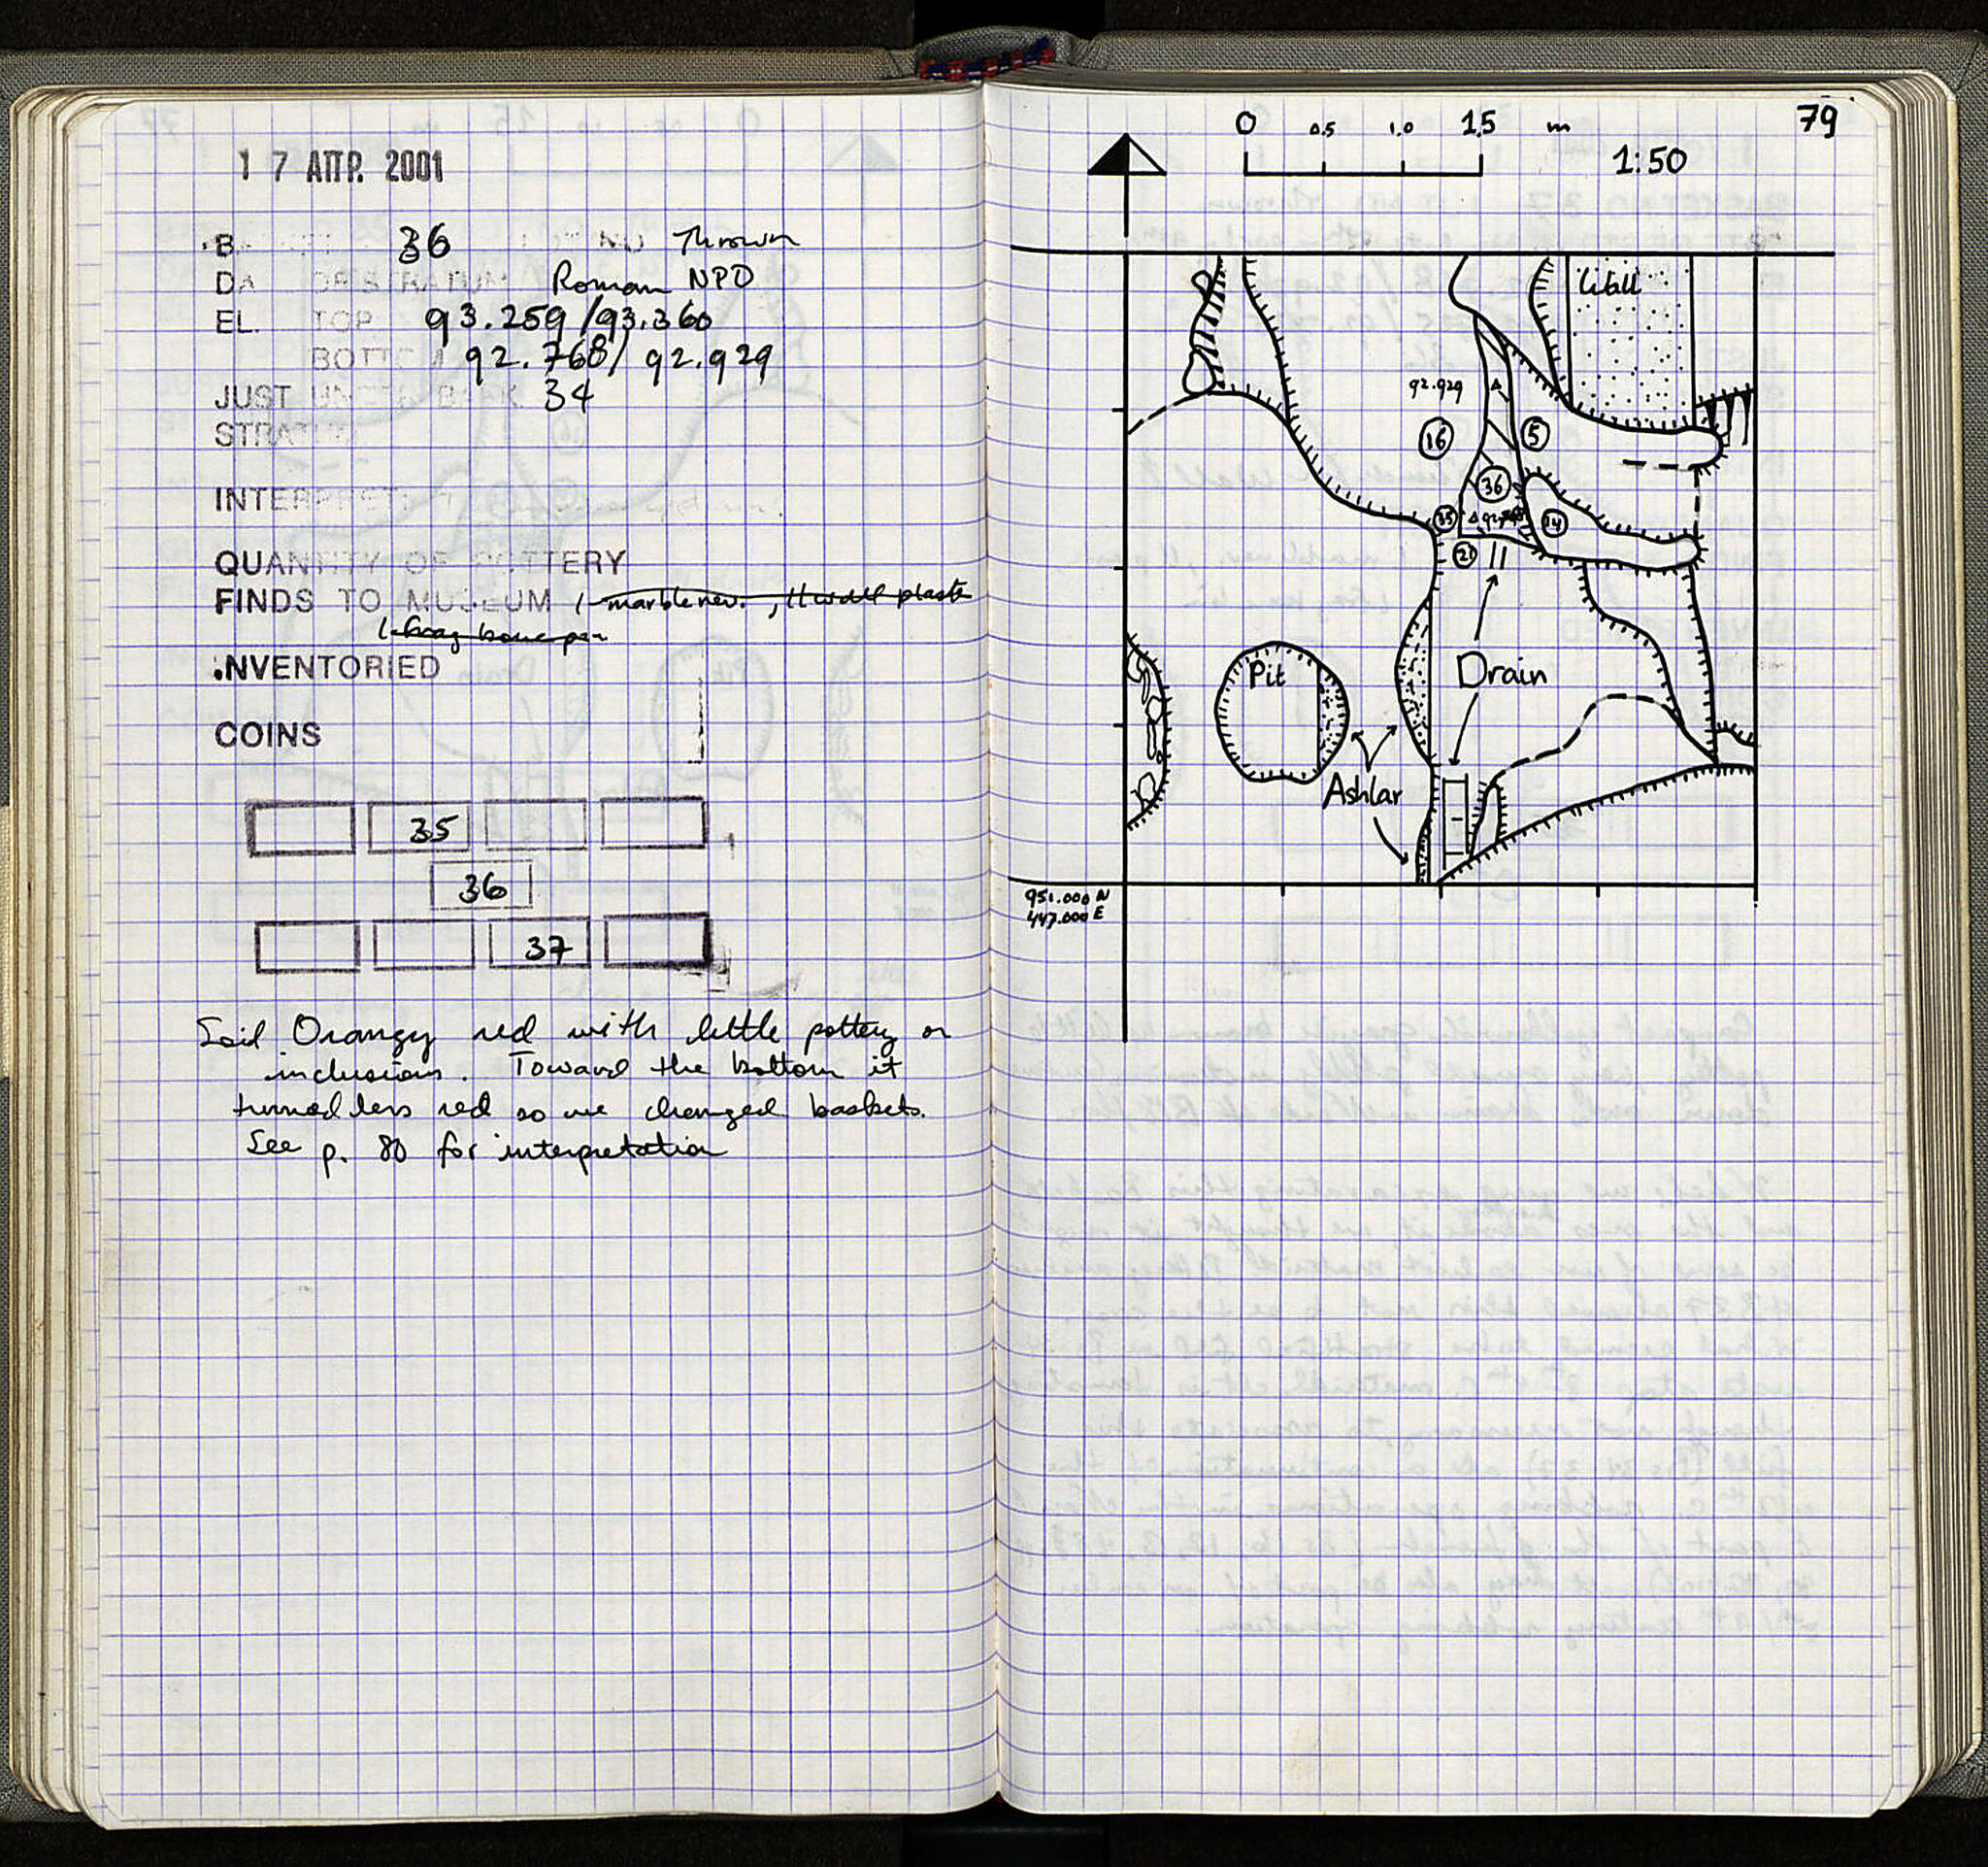 17 ΑΠΡ. 2001
B 36 NO Thrown
DA OF STRATUM Roman NPD
EL. TOP 93.259 / 93.360
BOTTOM 92.768 / 92.929
JUST UNDER BASK 34
STRATUM
INTERPRET
QUANTITY OF POTTERY
FINDS TO MUSEUM 1 marble rev. , 11 wall plaste
1 frag bone pin
INVENTORIED
COINS
35
36
37
Soil Orangy red with little pottery or
inclusions. Toward the bottom it
turned less red so we changed baskets.
See p. 80 for interpretation
79
0 0.5 1.0 1.5 m
1:50
Wall
92.929
16 5
36
35 34
21
Pit
Drain
Ashlar
951.000 N
447.000 E